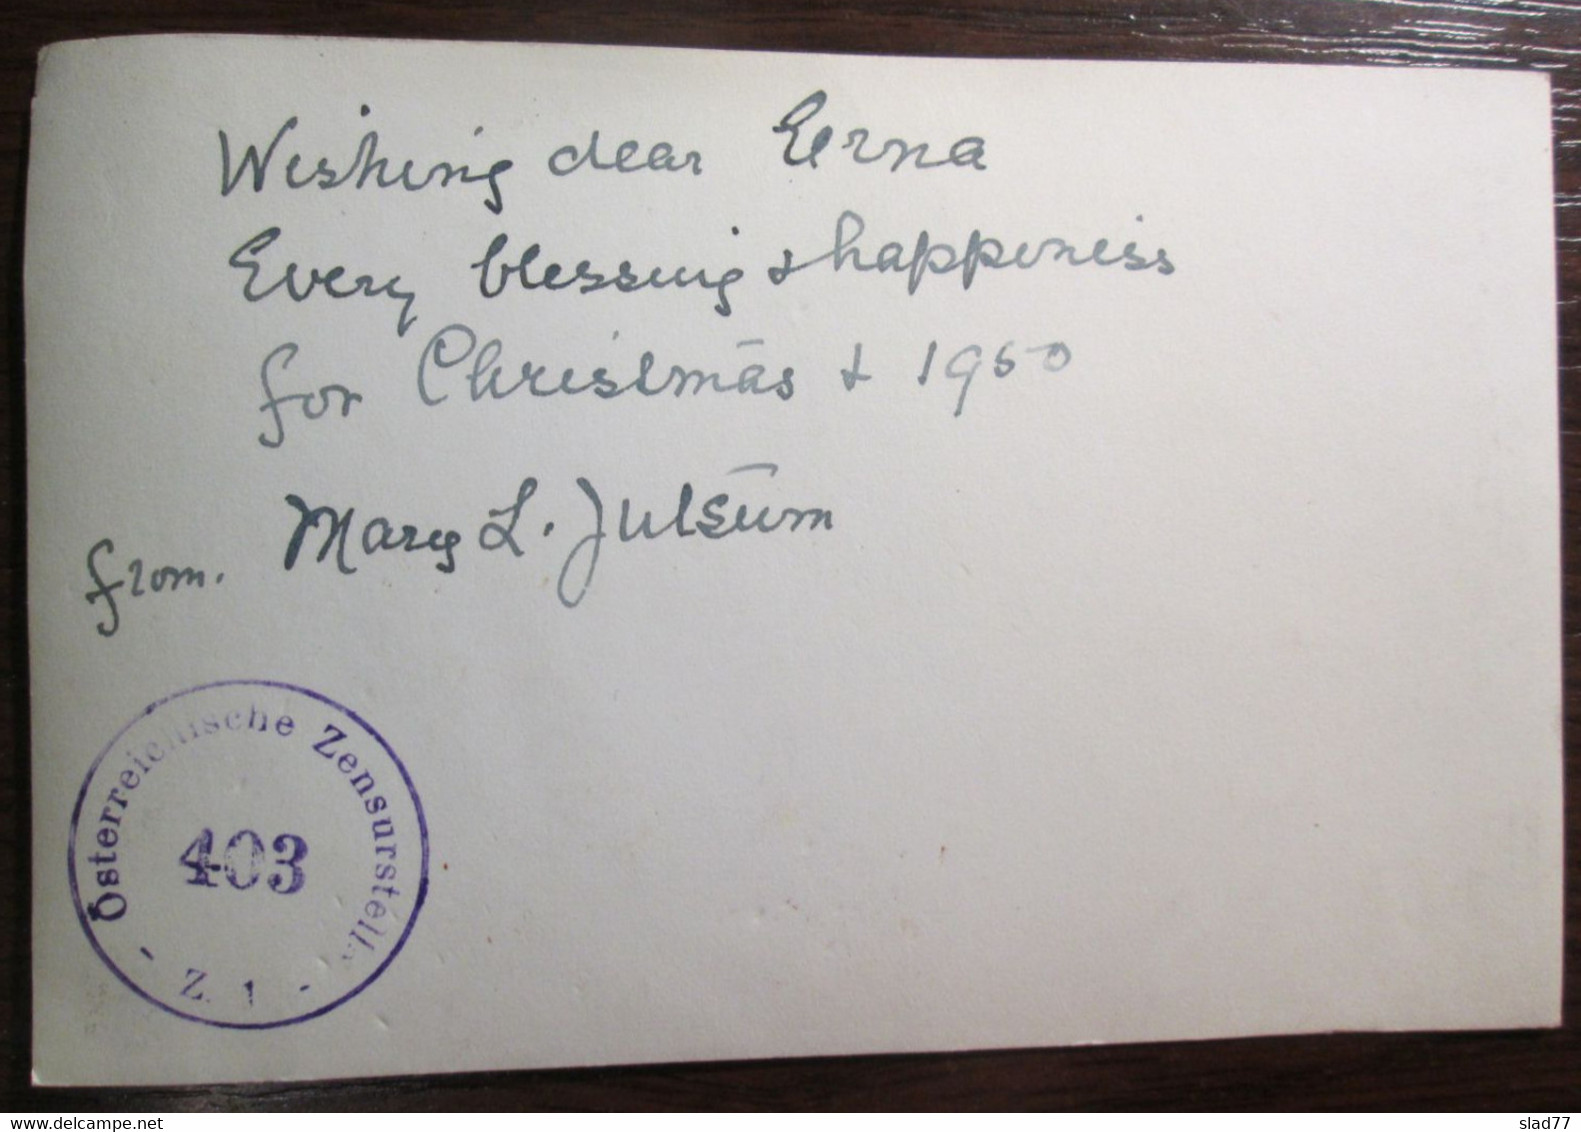 Wishing dear Erna
Every blessing & happiness
for Christmas & 1950
from. Mary L. Julsum
Österreichische Zensurstelle
403
- Z. 1 -
www.delcampe.net
slad77